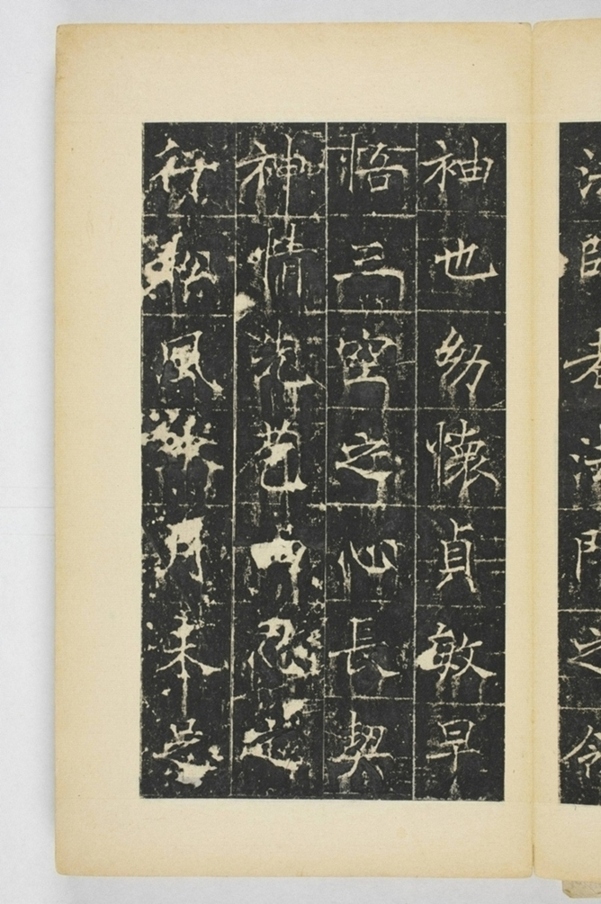 袖也幼懷貞敏早
悟三空之心長契
神情先苞四忍之
行松風水月未足